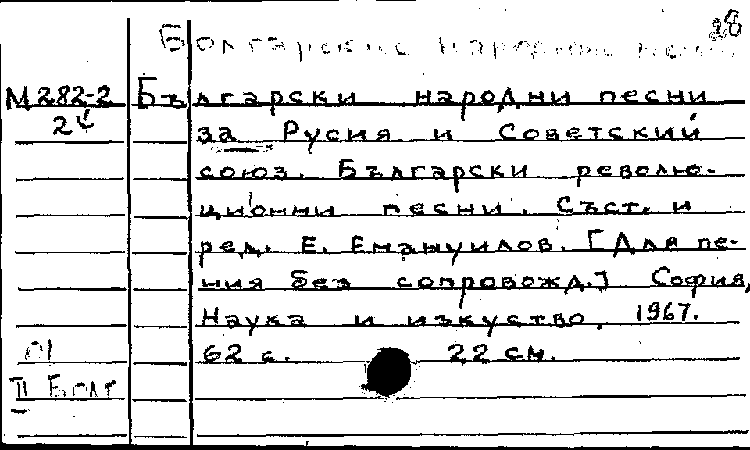 28
Болгарские народные песни
М 282-2 Български народни песни
24 за Русия и Советский
союз. Български револю-
ционни песни. Съст. и
ред. Е. Емануилов. [Для пе-
ния без сопровожд.] София,
Наука и изкуство, 1967.
01 62 с. 22 см.
II Болг